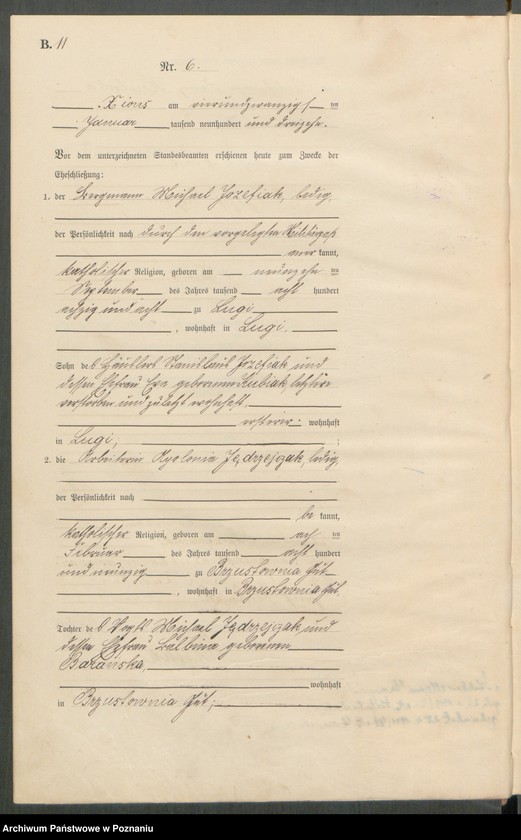 B. 11
Nr. 6.
Xions am vierundzwanzigst en
Januar tausend neunhundert und dreizehn.
Vor dem unterzeichneten Standesbeamten erschienen heute zum Zwecke der
Eheschließung:
1. der Bergmann Michael Jozefiak, ledig,
der Persönlichkeit nach durch den vorgelegten Militärpaß
aner kannt,
katholischer Religion, geboren am neunzehn ten
September des Jahres tausend acht hundert
achzig und acht zu Lugi
, wohnhaft in Lugi.
Sohn des Häuslers Stanislaus Jozefiak und
dessen Ehefrau Eva geborenen Kubiak, letztere
verstorben und zuletzt wohnhaft,
ersterer wohnhaft
in Lugi; ;
2. die Arbeiterin Apolonia Jędrzejczak, ledig,
der Persönlichkeit nach
be kannt,
katholischer Religion, geboren am ach ten
Februar des Jahres tausend acht hundert
und neunzig zu Brzustownia Gut
, wohnhaft in Brzustownia Gut,
Tochter des Vogts Michael Jędrzejczak und
dessen Ehefrau Balbina geborenen
Barańska,
wohnhaft
in Brzustownia Gut;
Archiwum Państwowe w Poznaniu